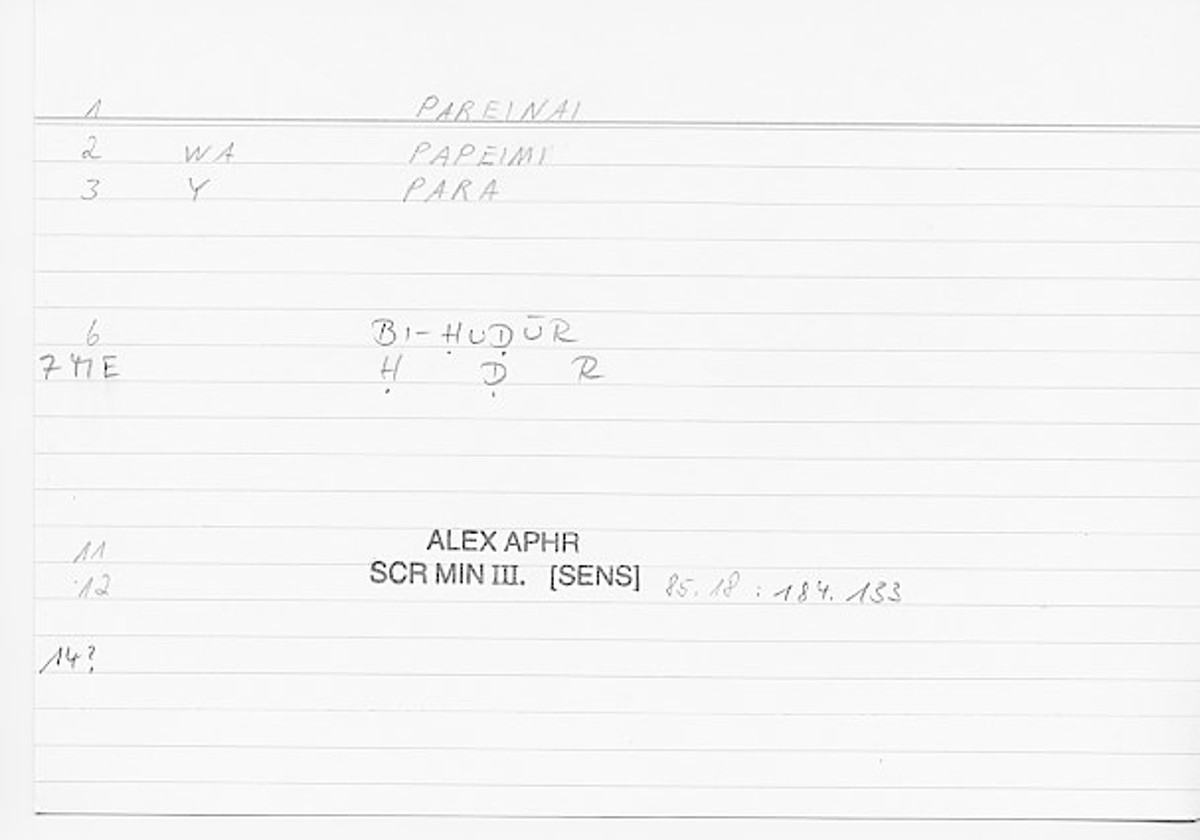 1 PAREINAI
2 WA PAPEIMI
3 Y PARA
6 BI-ḤUḌŪR
7 ME Ḥ Ḍ R
11 ALEX APHR
12 SCR MIN III. [SENS] 85.18 : 184.133
14?